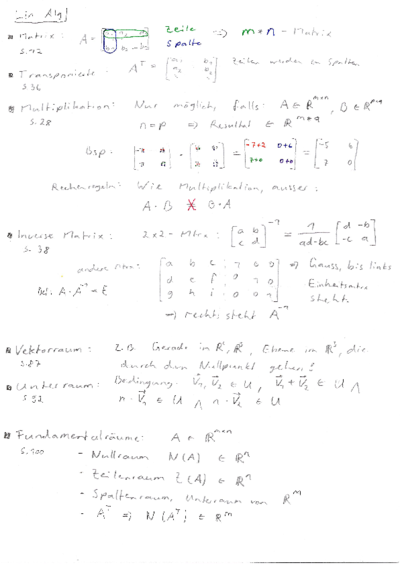 Lin Alg
Matrix: A = Zeile => m * n - Matrix
S.12 Spalte
Transponierte: A^T = Zeile werden zu Spalten
S.36
Multiplikation: Nur möglich, falls: A ∈ R^{m×n}, B ∈ R^{p×q}
S.28 n=p => Resultat ∈ R^{m×q}
Bsp.
Rechenregeln: Wie Multiplikation, ausser:
A · B B · A
Inverse Matrix: 2x2 - Mtrx: [a b; c d]^{-1} = 1/(ad-bc) [d -b; -c a]
S. 38
andere Mtrn: [a b c | 1 0 0 => Gauss, bis links
A · A^{-1} = E d e f | 0 1 0 Einheitsmtrx
g h i | 0 0 1] steht.
=> rechts steht A^{-1}
Vektorraum: z.B. Gerade in R², R³, Ebene im R³, die
S.87 durch den Nullpunkt gehen!
Unterraum: Bedingung: V₁, V₂ ∈ U, V₁ + V₂ ∈ U ∧
S.92 n · V₁ ∈ U ∧ n · V₂ ∈ U
Fundamentalräume: A ∈ R^{m×n}
S.100 - Nullraum N(A) ∈ R^n
- Zeilenraum Z(A) ∈ R^n
- Spaltenraum, Unterraum von R^m
- A^T => N(A^T) ∈ R^m